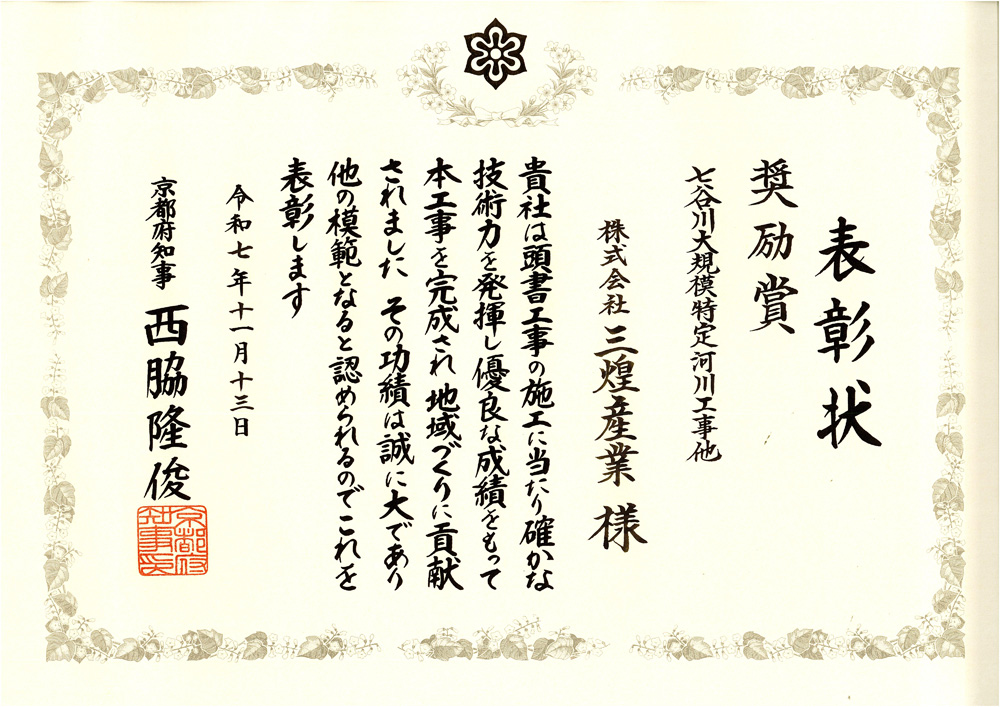 表彰状
奨励賞
七谷川大規模特定河川工事他
株式会社 三煌産業 様
貴社は頭書工事の施工に当たり確かな
技術力を発揮し優良な成績をもって
本工事を完成され 地域づくりに貢献
されました その功績は誠に大であり
他の模範となると認められるのでこれを
表彰します
令和七年十一月十三日
京都府知事 西脇隆俊
京都府
知事印